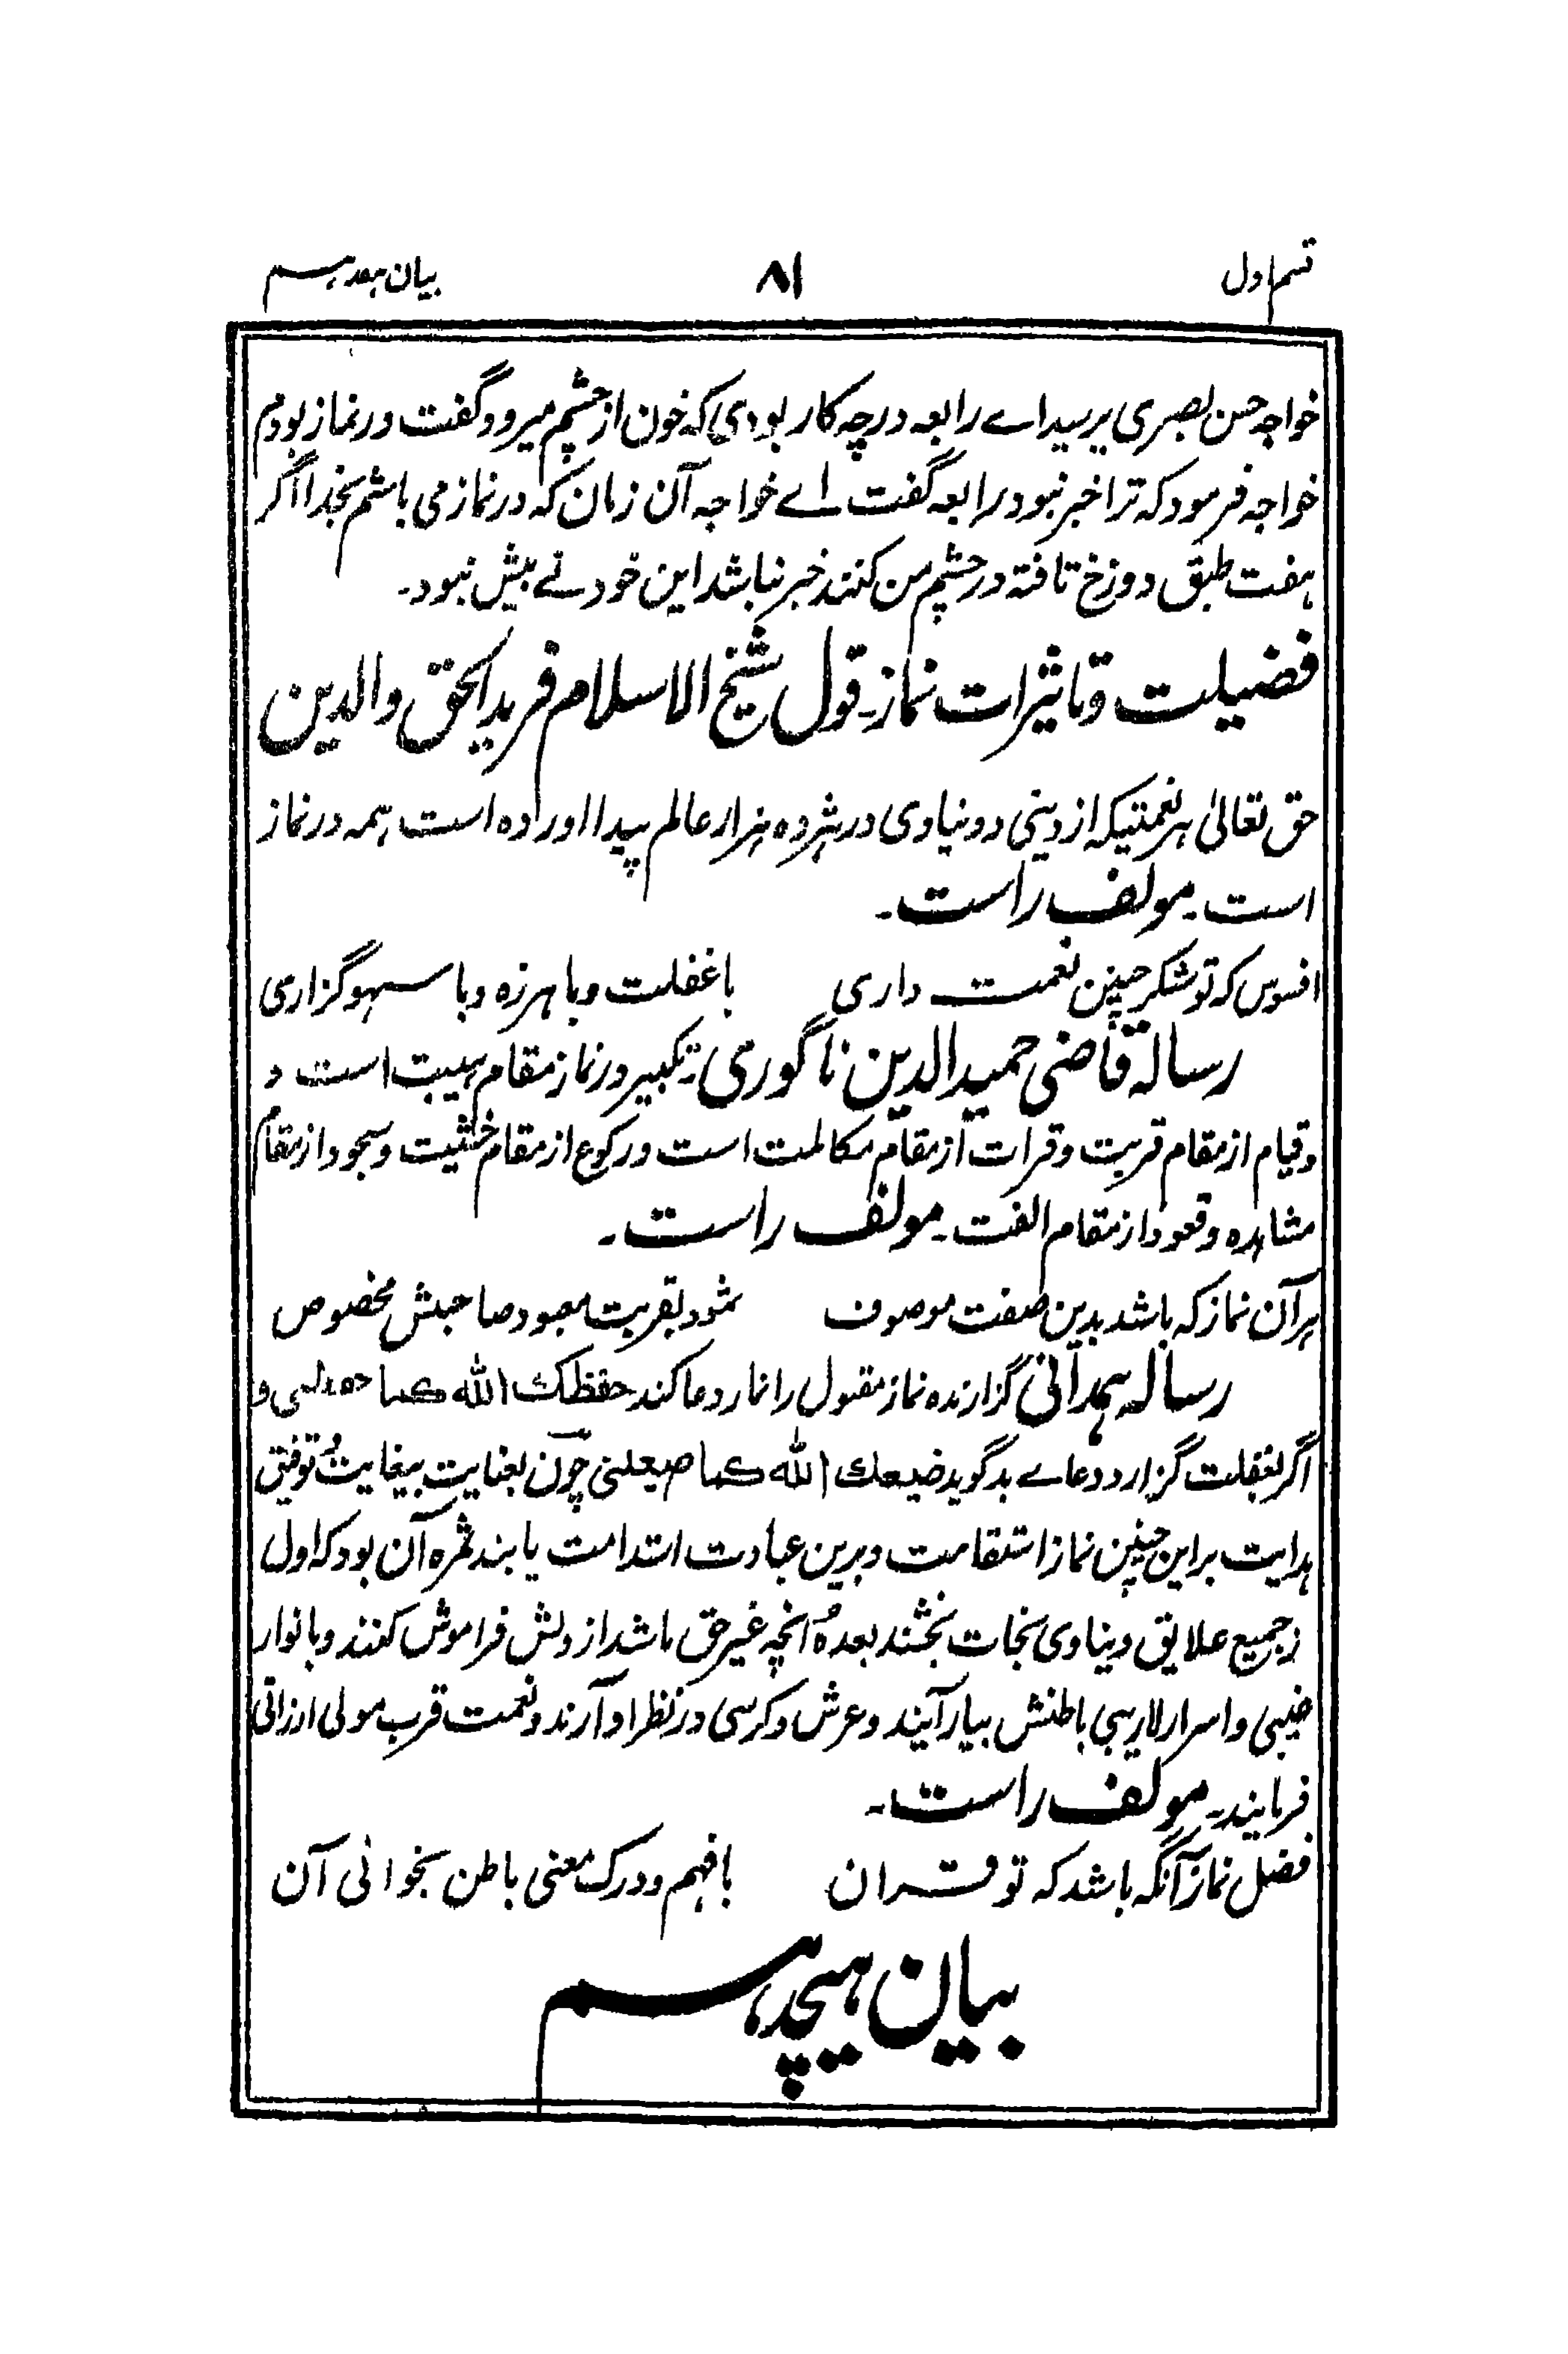 قسم اول ۸۱ بیان ہفدہم
خواجہ حسن بصری پرسید اے رابعہ در چہ کار بودی کہ خون از چشم میرود گفت در نماز بودم
خواجہ فرمود کہ ترا خبر نبود رابعہ گفت اے خواجہ آن زمان کہ در نماز می باشم بخدا اگر
ہفت طبق دوزخ تافتہ در چشم من کنند خبر نباشد این خود نے بیش نبود۔
فضیلت و تاثیرات نماز۔ قول شیخ الاسلام فرید الحق والدین
حق تعالیٰ ہر نعمتیکہ از دینی و دنیاوی در ہژدہ ہزار عالم پیدا اورادہ است ہمہ در نماز
است۔ مولف راست۔
افسوس کہ تو شکر چنین نعمت داری با غفلت و با ہرزہ و با سہو گزاری
رسالہ قاضی حمید الدین ناگوری: تکبیر در نماز مقام ہیبت است و
و قیام از مقام قربت و قرات از مقام مکالمت است و رکوع از مقام خشیت و سجود از مقام
مشاہدہ و قعود از مقام الفت۔ مولف راست۔
ہر آن نماز کہ باشد بدین صفت موصوف شود بقربت معبود صاحبش مخصوص
رسالہ ہمدانی گزارندہ نماز مقبول را نماز دعا کند حفظک اللہ کما حفظتنی و
اگر بغفلت گزارد دعاے بد گوید ضیعک اللہ کما ضیعتنی چون بعنایت بیغایت توفیق
ہدایت براین چنین نماز استقامت و برین عبادت استدامت یابند ثمرہ آن بود کہ اول
زجمیع علایق دیناوی نجات بخشند بعدہٗ انچہ غیر حق باشد از دلش فراموش کنند و بانوار
غیبی و اسرار لاریبی باطنش بیارآیند و عرش و کرسی در نظر او آرند و نعمت قرب مولی ارزانی
فرمایند۔ مولف راست۔
فضل نماز آنگہ باشد کہ تو قران با فہم و درک معنی باطن بخوانی آن
بیان ہیچدہم